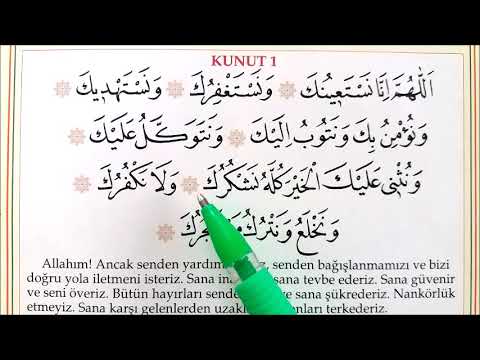 KUNUT 1
اَللّٰهُمَّ اِنَّا نَسْتَعٖينُكَ وَنَسْتَغْفِرُكَ وَنَسْتَهْدٖيكَ
وَنُؤْمِنُ بِكَ وَنَتُوبُ اِلَيْكَ وَنَتَوَكَّلُ عَلَيْكَ
وَنُثْنٖى عَلَيْكَ الْخَيْرَ كُلَّهُ نَشْكُرُكَ وَلَا نَكْفُرُكَ
وَنَخْلَعُ وَنَتْرُكُ
Allahım! Ancak senden senden bağışlanmamızı ve bizi
doğru yola iletmeni isteriz. Sana sana tevbe ederiz. Sana güvenir
ve seni överiz. Bütün hayırları ve sana şükrederiz. Nankörlük
etmeyiz. Sana karşı gelenlerden terkederiz.